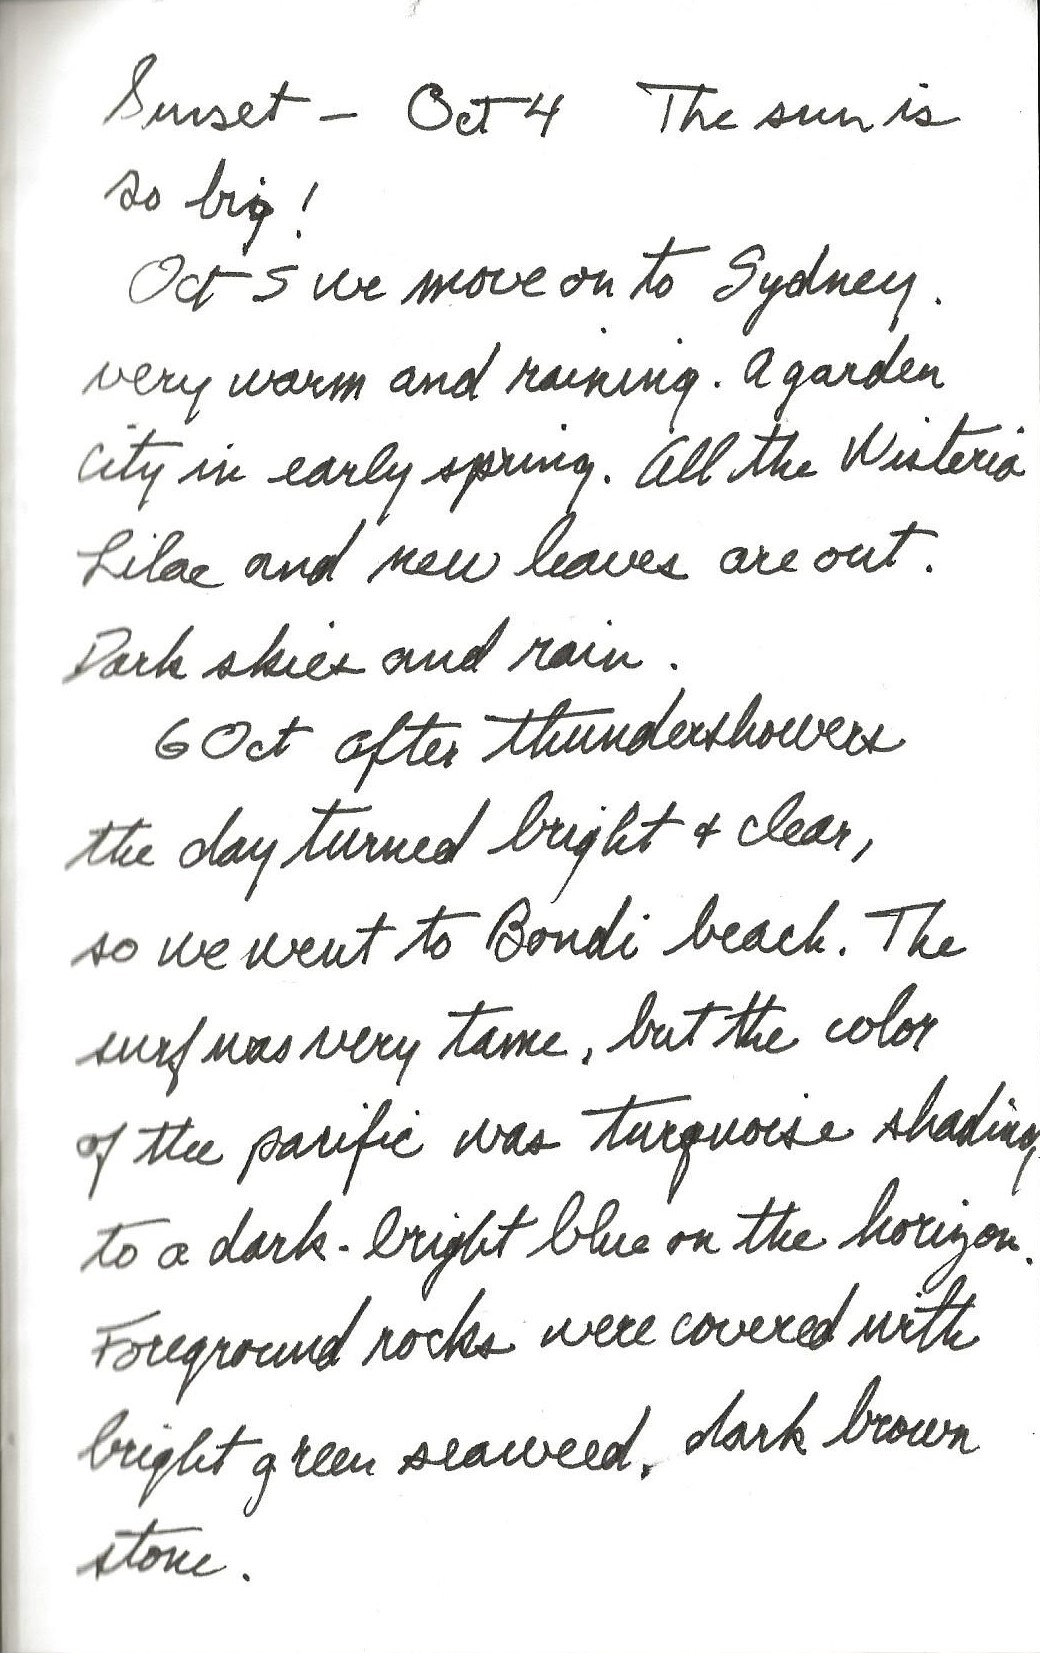 Sunset – Oct 4 The sun is
so big!
Oct 5 we move on to Sydney.
very warm and raining. A garden
city in early spring. All the Wisteria
Lilac and new leaves are out.
Dark skies and rain.
6 Oct after thundershowers
the day turned bright & clear,
so we went to Bondi beach. The
surf was very tame, but the color
of the pacific was turquoise shading
to a dark-bright blue on the horizon.
Foreground rocks were covered with
bright green seaweed, dark brown
stone.